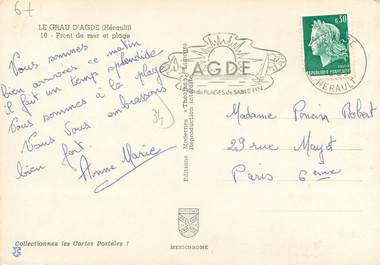 67
LE GRAU D'AGDE (Hérault)
10 - Front de mer et plage
Vous sommes
bien arrivées ce matin
il fait un temps splendide
Vous sommes à la plage
Vous Vous embrassons
bien fort.
Anne Marie
34
AGDE
PLAGES de SABLE FIN
HERAULT
0,50
REPUBLIQUE FRANCAISE
POSTES
Madame Poncin Robert
29 rue Mayet
Paris 6eme
Editions Modernes "Théojac"
Reproduction interdite
MEXICHROME
Collectionnez les Cartes Postales !